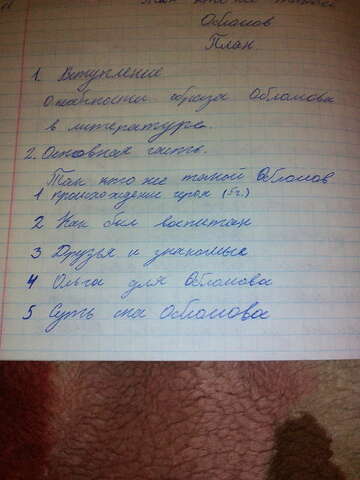 Так кто же такой
Обломов
План.
1. Вступление
Особенности образа Обломова
в литературе.
2. Основная часть.
Так кто же такой Обломов
1 происхождение героя (1г.)
2 Как был воспитан
3 Друзья и знакомые
4 Ольга для Обломова
5 Суть Обломова